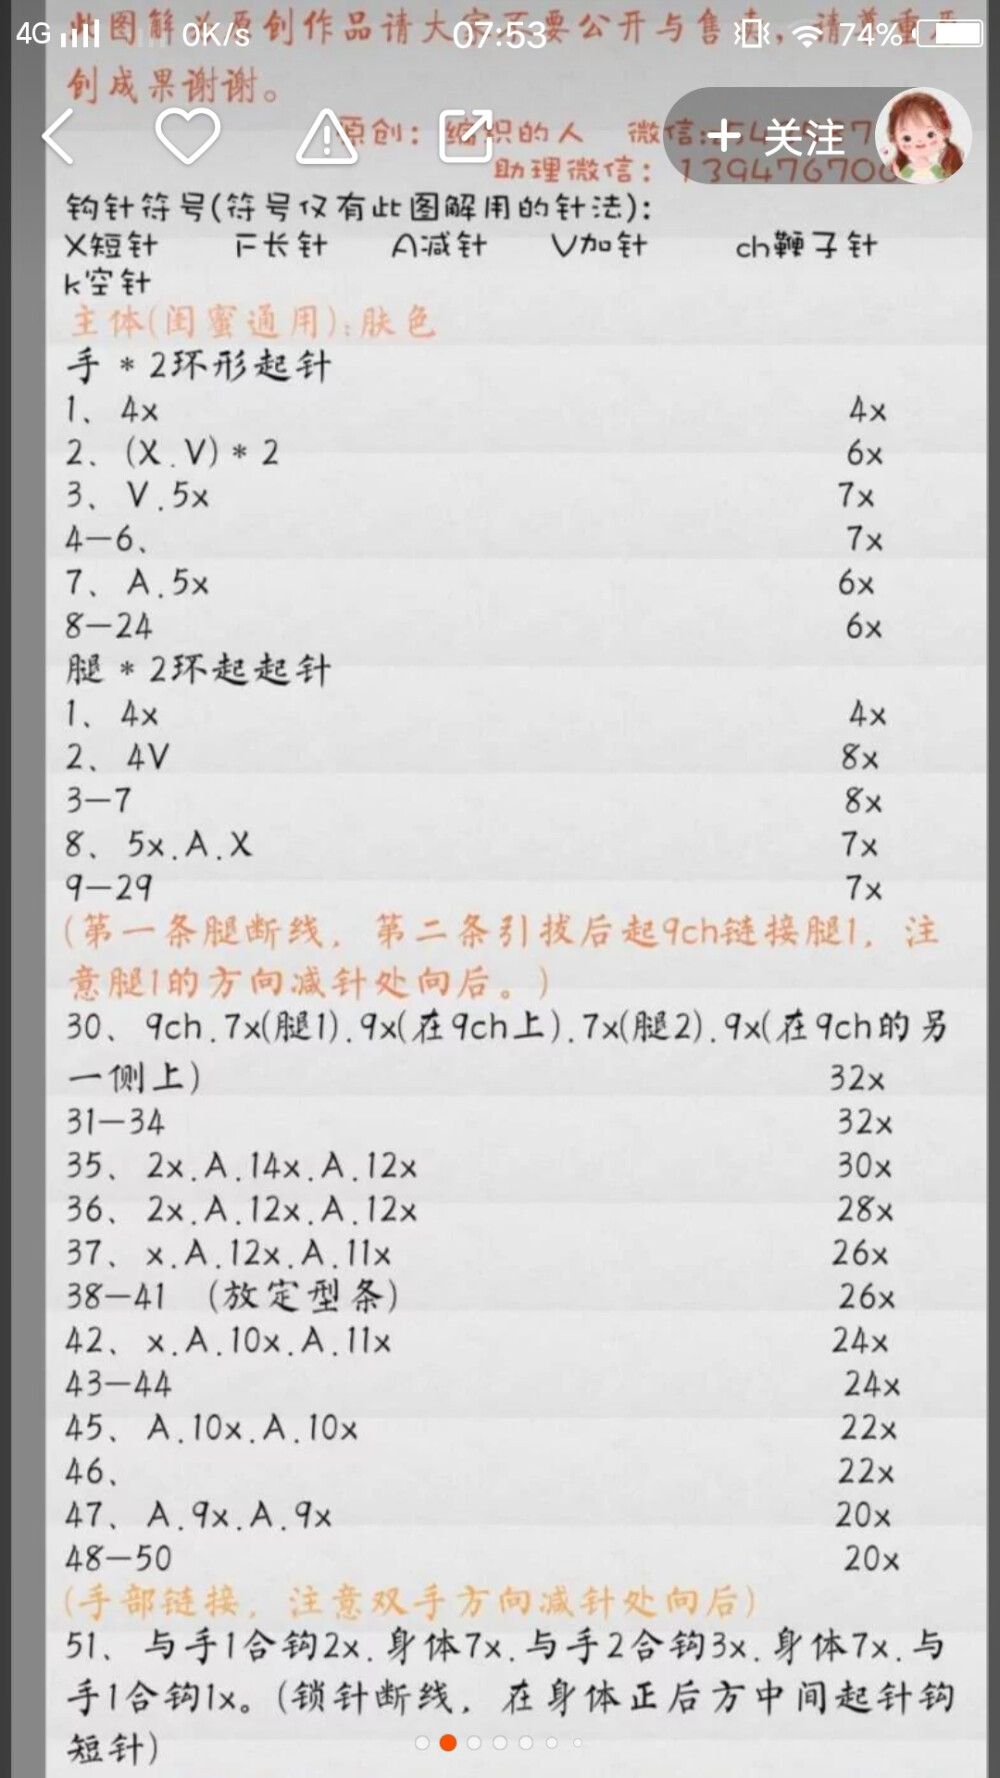 4G 0K/s 07:53 74%
图解 原创作品请大 要公开与售 ,请尊重
创成果谢谢。
+ 关注
原创:编织的人 微信:
助理微信:
钩针符号(符号仅有此图解用的针法):
X短针 F长针 A减针 V加针 ch鞭子针
k空针
主体(闺蜜通用):肤色
手 * 2环形起针
1、4x 4x
2、(X.V) * 2 6x
3、V.5x 7x
4—6、 7x
7、A.5x 6x
8—24 6x
腿 * 2环起起针
1、4x 4x
2、4V 8x
3—7 8x
8、5x.A.X 7x
9—29 7x
(第一条腿断线,第二条引拔后起9ch链接腿1,注
意腿1的方向减针处向后。)
30、9ch.7x(腿1).9x(在9ch上).7x(腿2).9x(在9ch的另
一侧上) 32x
31—34 32x
35、2x.A.14x.A.12x 30x
36、2x.A.12x.A.12x 28x
37、x.A.12x.A.11x 26x
38—41 (放定型条) 26x
42、x.A.10x.A.11x 24x
43—44 24x
45、A.10x.A.10x 22x
46、 22x
47、A.9x.A.9x 20x
48—50 20x
(手部链接,注意双手方向减针处向后)
51、与手1合钩2x.身体7x.与手2合钩3x.身体7x.与
手1合钩1x。(锁针断线,在身体正后方中间起针钩
短针)